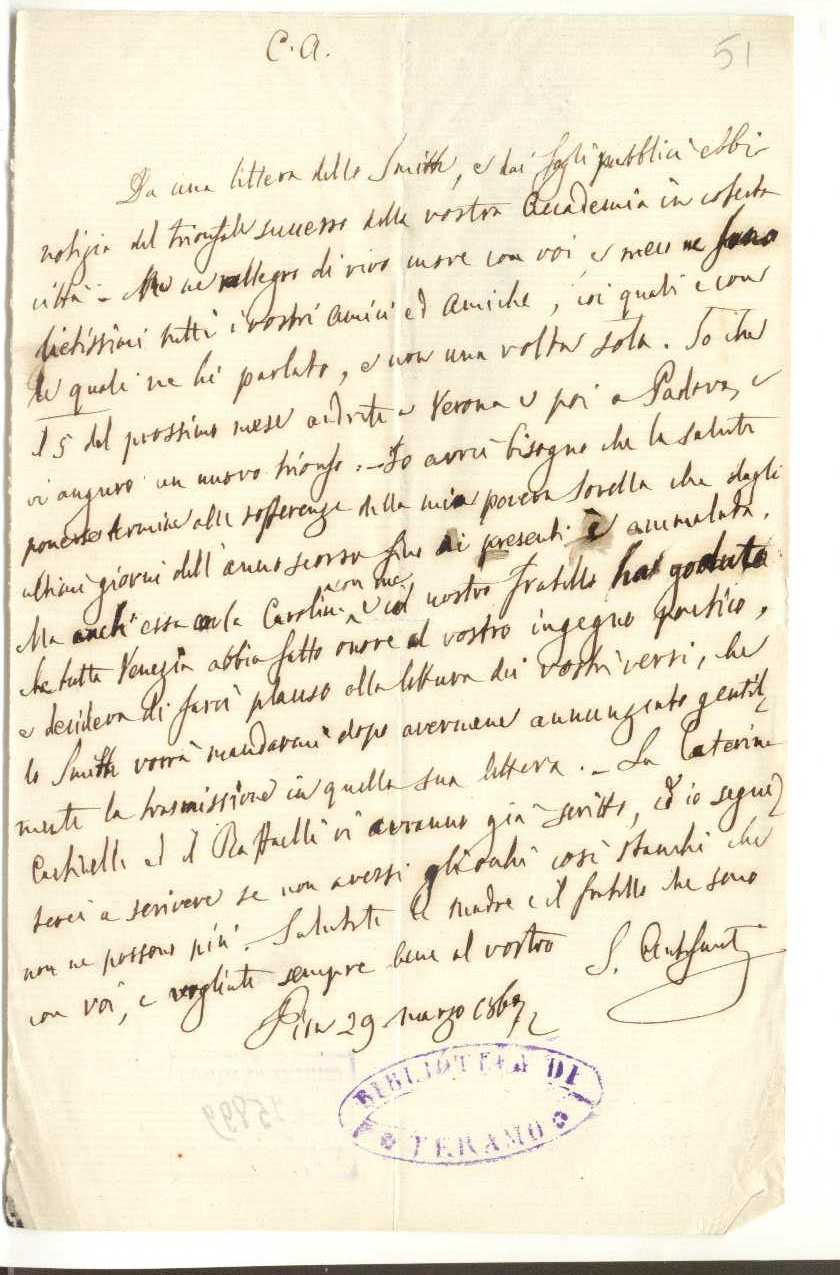 C. A.
51
Da una lettera dello Smith, e dai fogli pubblici ebbi
notizia del trionfale successo della vostra Accademia in cotesta
città - Me ne rallegro di vivo cuore con voi, e meco ne sono
lietissimi tutti i vostri amici ed amiche, coi quali e con
le quali ne hi parlato, e non una volta sola. So che
il 5 del prossimo mese andrete a Verona e poi a Padova, e
vi auguro un nuovo trionfo. - Io avrei bisogno che la salute
ponesse termine alle sofferenze della mia povera sorella che dagli
ultimi giorni dell'anno scorso fino ai presenti è ammalata.
Ma anch'essa con la Carolina, con me e col nostro fratello ha goduto
che tutta Venezia abbia fatto onore al vostro ingegno poetico,
e desidera di farci plauso alla lettura dei vostri versi, che
lo Smith vorrà mandarmi dopo avermene annunziato gentil
mente la trasmissione in quella sua lettera. - La Caterina
ed il Raffaelli vi avranno già scritto, ed io segui
terei a scrivere se non avessi gli occhi così stanchi che
non ne possono più. Salutate la madre e il fratello che sono
con voi, e vogliate sempre bene al vostro
Pisa 29 marzo
BIBLIOTECA DI
TERAMO
15899